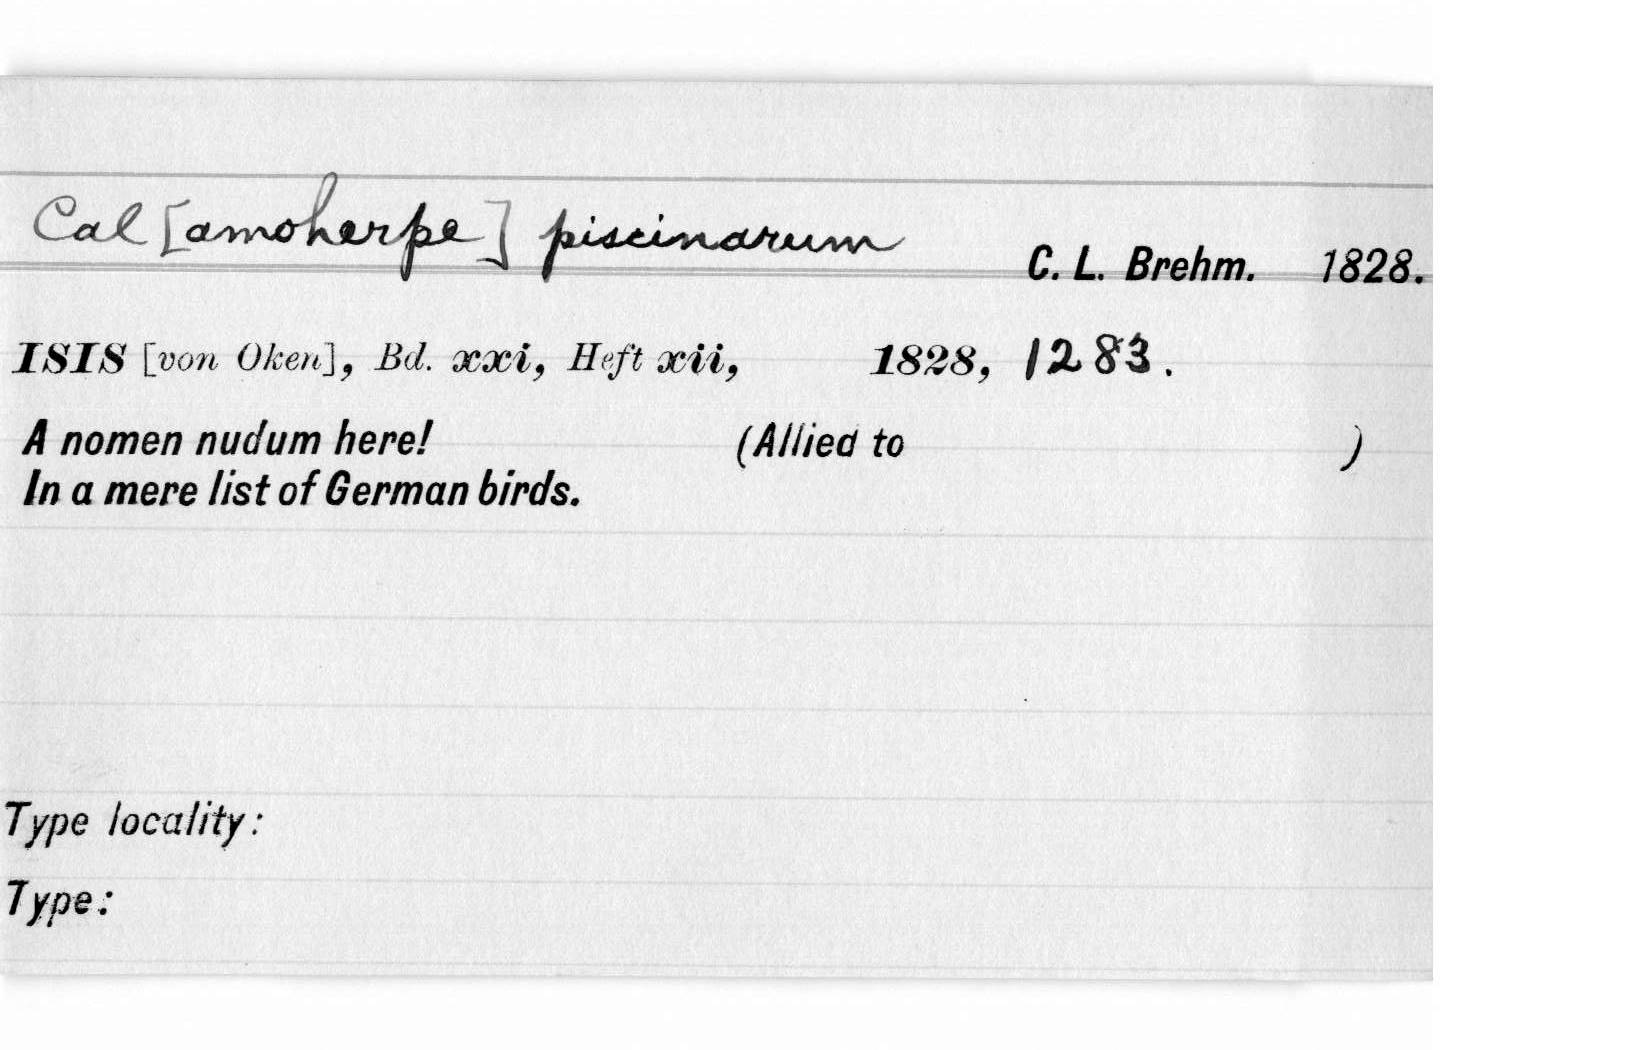 Cal [amoherpe] piscinarum C. L. Brehm. 1828.
ISIS [von Oken], Bd. xxi, Heft xii, 1828, 1283.
A nomen nudum here! (Allied to )
In a mere list of German birds.
Type locality:
Type: